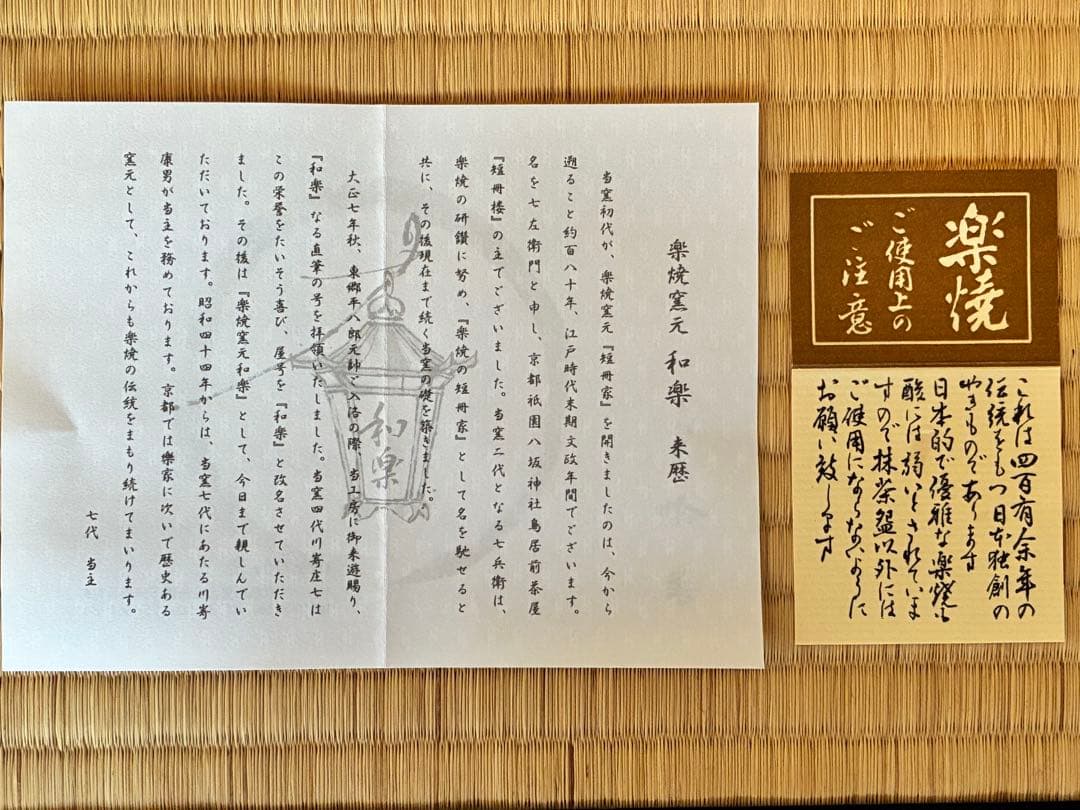 楽焼窯元 和楽 来歴
当窯初代が、楽焼窯元『短冊家』を開きましたのは、今から
遡ること約百八十年、江戸時代末期文政年間でございます。
名を七左衛門と申し、京都祇園八坂神社鳥居前茶屋
『短冊楼』の主でございました。当窯二代となる七兵衛は、
楽焼の研鑽に努め、『楽焼の短冊家』として名を馳せると
共に、その後現在まで続く当窯の礎を築きました。
大正七年秋、東郷平八郎元帥ご入洛の際、当工房に御来遊賜り、
『和楽』なる直筆の号を拝領いたしました。当窯四代川嵜庄七は
この栄誉をたいそう喜び、屋号を『和楽』と改名させていただき
ました。その後は『楽焼窯元和楽』として、今日まで親しんでい
ただいております。昭和四十四年からは、当窯七代にあたる川嵜
康男が当主を務めております。京都では樂家に次いで歴史ある
窯元として、これからも楽焼の伝統をまもり続けてまいります。
七代 当主
和楽
楽焼
ご使用上の
ご注意
これは四百有余年の
伝統をもつ日本独創の
やきものであります
日本的で優雅な楽焼も
酸には弱いとされていま
すので抹茶盌以外には
ご使用にならないように
お願い致します